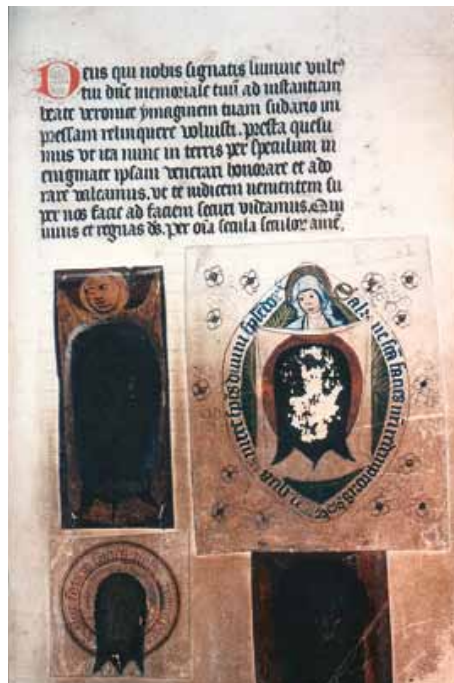 Deus qui nobis signatis lumine vultꝰ
tui dñe memoriale tuũ ad instantiam
beate veronice ymaginem tuam sudario im
pressam relinquere voluisti. presta quesu
mus vt ita nunc in terris per speculum in
enigmate ipsam venerari honorare et ado
rare valeamus. vt te iudicem venientem su
per nos facie ad faciem securi videamus. Qui
viuis et regnas ds. per oĩa secula seculoꝝ amẽ.
Salue sca facies nri redemptoris